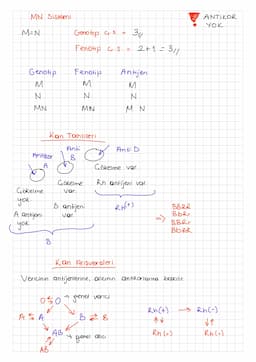 MN Sistemi
! ANTİKOR YOK
M=N
Genotip ç.s = 3//
Fenotip ç.s = 2+1 = 3//
Genotip Fenotip Antijen
M M M
N N N
MN MN M N
Kan Tahlilleri
Antikor A
Anti B
Anti D
Çökelme yok
Çökelme var.
Çökelme var.
A antijeni yok
B antijeni var.
Rh antijeni var.
Rh(+)
B
=> BBRR
BBRr
B0Rr
B0RR
Kan Aktarımları
Vericinin antijenlerine, alıcının antikorlarına bakılır.
0 ⇄ 0 → genel verici
A ⇄ A
B ⇄ B
AB → genel alıcı
AB
Rh(+) Rh(-)
Rh(+) Rh(-)